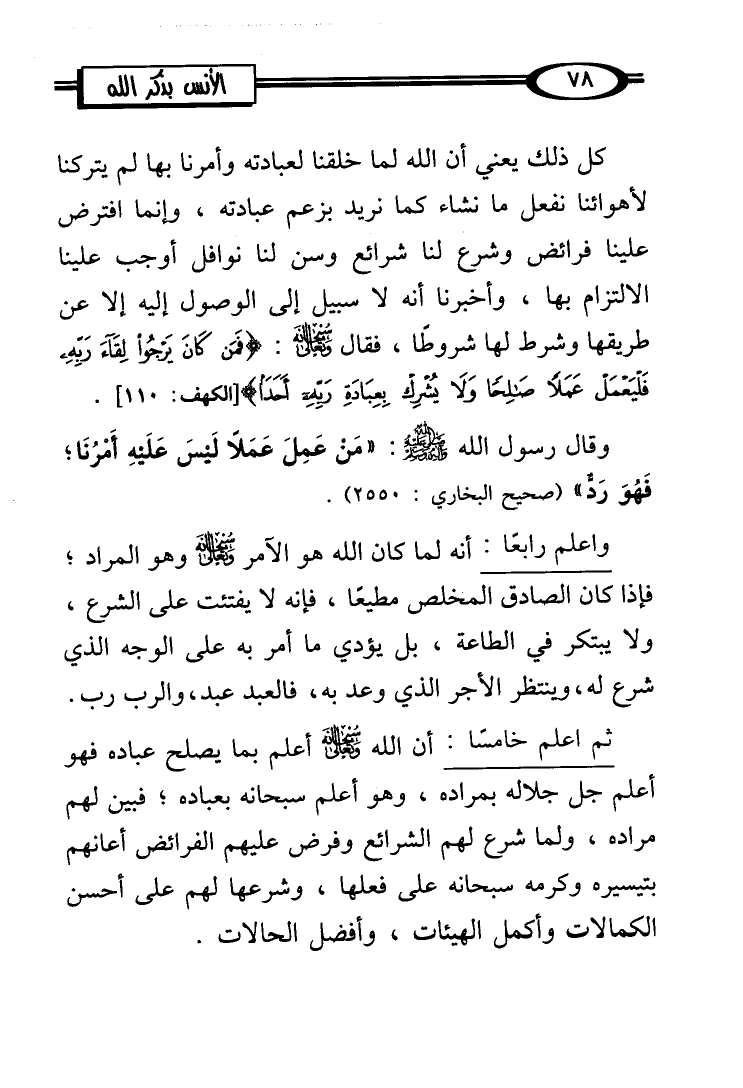 ٧٨
الأنس بذكر الله
كل ذلك يعني أن الله لما خلقنا لعبادته وأمرنا بها لم يتركنا
لأهوائنا نفعل ما نشاء كما نريد بزعم عبادته ، وإنما افترض
علينا فرائض وشرع لنا شرائع وسن لنا نوافل أوجب علينا
الالتزام بها ، وأخبرنا أنه لا سبيل إلى الوصول إليه إلا عن
طريقها وشرط لها شروطًا ، فقال سبحانه وتعالى : ﴿فَمَن كَانَ يَرْجُوا۟ لِقَآءَ رَبِّهِۦ
فَلْيَعْمَلْ عَمَلًا صَٰلِحًا وَلَا يُشْرِكْ بِعِبَادَةِ رَبِّهِۦٓ أَحَدًۢا﴾[الكهف: ١١٠] .
وقال رسول الله ﷺ : «مَنْ عَمِلَ عَمَلًا لَيْسَ عَلَيْهِ أَمْرُنَا؛
فَهُوَ رَدٌّ» (صحيح البخاري : ٢٥٥٠) .
واعلم رابعًا : أنه لما كان الله هو الآمر سبحانه وتعالى وهو المراد ؛
فإذا كان الصادق المخلص مطيعًا ، فإنه لا يفتئت على الشرع ،
ولا يبتكر في الطاعة ، بل يؤدي ما أمر به على الوجه الذي
شرع له،وينتظر الأجر الذي وعد به، فالعبد عبد،والرب رب.
ثم اعلم خامسًا : أن الله سبحانه وتعالى أعلم بما يصلح عباده فهو
أعلم جل جلاله بمراده ، وهو أعلم سبحانه بعباده ؛ فبين لهم
مراده ، ولما شرع لهم الشرائع وفرض عليهم الفرائض أعانهم
بتيسيره وكرمه سبحانه على فعلها ، وشرعها لهم على أحسن
الكمالات وأكمل الهيئات ، وأفضل الحالات .